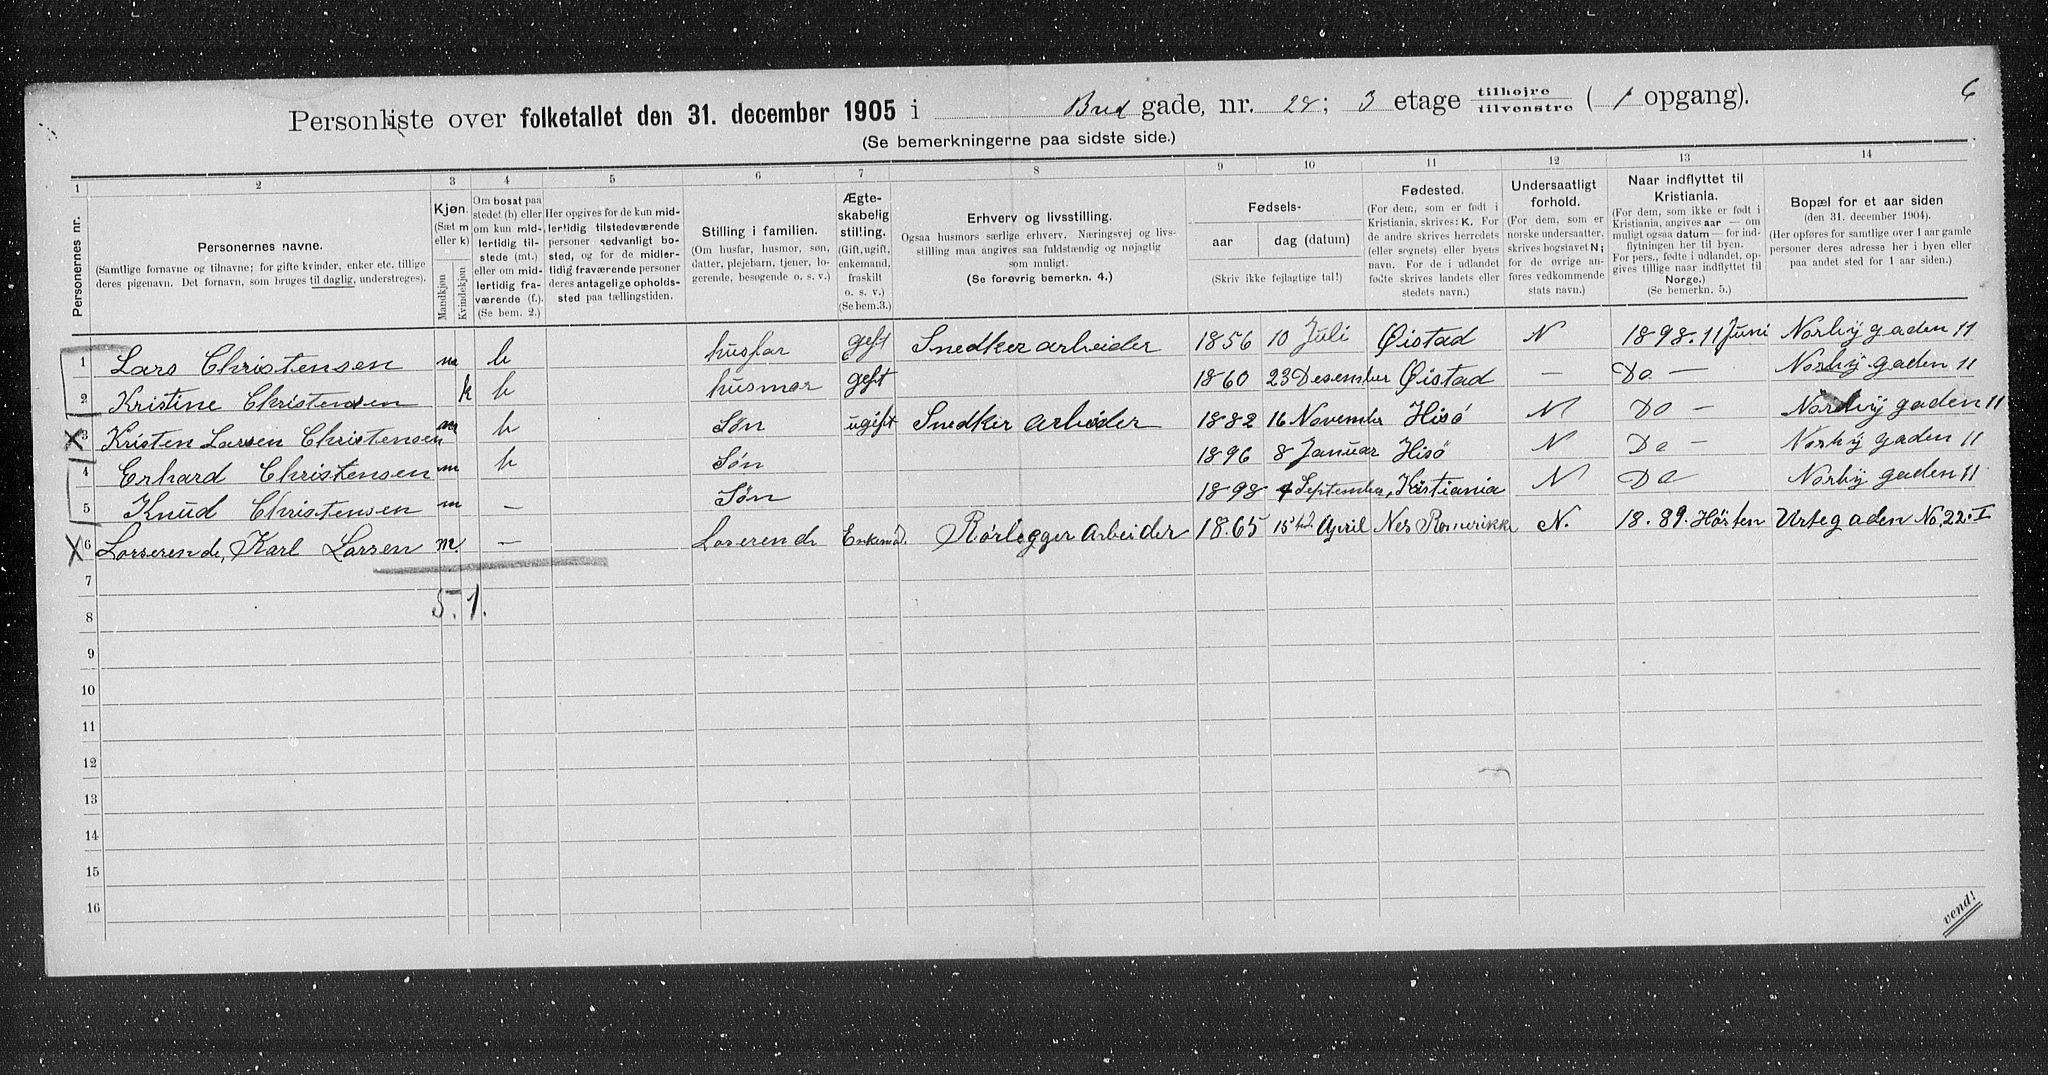 Personliste over folketallet den 31. december 1905 i Bred gade, nr. 28; 3 etage tilhøjre tilvenstre ( 1 opgang). 6
(Se bemerkningerne paa sidste side.)
1 2 3 4 5 6 7 8 9 10 11 12 13 14
Personernes nr.
Personernes navne.
(Samtlige fornavne og tilnavne; for gifte kvinder, enker etc. tillige
deres pigenavn. Det fornavn, som bruges til daglig, understreges).
Kjøn.
(Sæt m
eller k)
Mandkjøn
Kvindekjøn
Om bosat paa
stedet (b) eller
om kun mid-
lertidig til-
stede (mt.)
eller om mid-
lertidig fra-
værende (f.).
(Se bem. 2.)
Her opgives for de kun mid-
lertidig tilstedeværende
personer sedvanlig bo-
sted, og for de midler-
tidig fraværende personer
deres antagelige opholds-
sted paa tællingstiden.
Stilling i familien.
(Om husfar, husmor, søn,
datter, plejebarn, tjener, lo-
gerende, besøgende o. s. v.)
Ægte-
skabelig
stilling.
(Gift, ugift,
enkemand,
fraskilt
o. s. v.)
(Se bem.3.)
Erhverv og livsstilling.
Ogsaa husmors særlige erhverv. Næringsvej og livs-
stilling maa angives saa fuldstændig og nøjagtig
som muligt.
(Se forøvrig bemerkn. 4.)
Fødsels-
aar dag (datum)
(Skriv ikke fejlagtige tal!)
Fødested.
(For dem, som er født i
Kristiania, skrives: K. For
de andre skrives herredets
(eller sognets) eller byens
navn. For de i udlandet
fødte skrives landets eller
stedets navn.)
Undersaatligt
forhold.
(For dem, som er
norske undersaatter,
skrives bogstavet N;
for de øvrige an-
føres vedkommende
stats navn.)
Naar indflyttet til
Kristiania.
(For dem, som ikke er født i
Kristiania, angives aar — om
muligt ogsaa datum — for ind-
flytningen her til byen.
For pers., fødte i udlandet, op-
gives tillige naar indflyttet til
Norge.)
(Se bemerkn. 5.)
Bopæl for et aar siden
(den 31. december 1904).
(Her opføres for samtlige over 1 aar gamle
personer deres adresse her i byen eller
paa andet sted for 1 aar siden.)
1 Lars Christensen m b husfar geft Snedker arbeider 1856 10 Juli Øistad N 1898. 11 Juni Norbygaden 11
2 Kristine Christensen k b husmor geft 1860 23 Desember Øistad — Do — Norbygaden 11
X 3 Kristen Larsen Christensen m b Søn ugift Snedker arbeider 1882 16 November Hisø N Do — Norbygaden 11
4 Erhard Christensen m b Søn 1896 8 Januar Hisø N Do — Norbygaden 11
5 Knud Christensen m — Søn 1898 4 September, Kristiania N Do Norbygaden 11
X 6 Losserende, Karl Larsen m. — Loserende Enkemad. Rørlegger Arbeider 1865 15 April Nes Romerikke N. 18.89. Horten Urtegaden No, 22. I
7
5. 1.
8
9
10
11
12
13
14
15
16
vend!